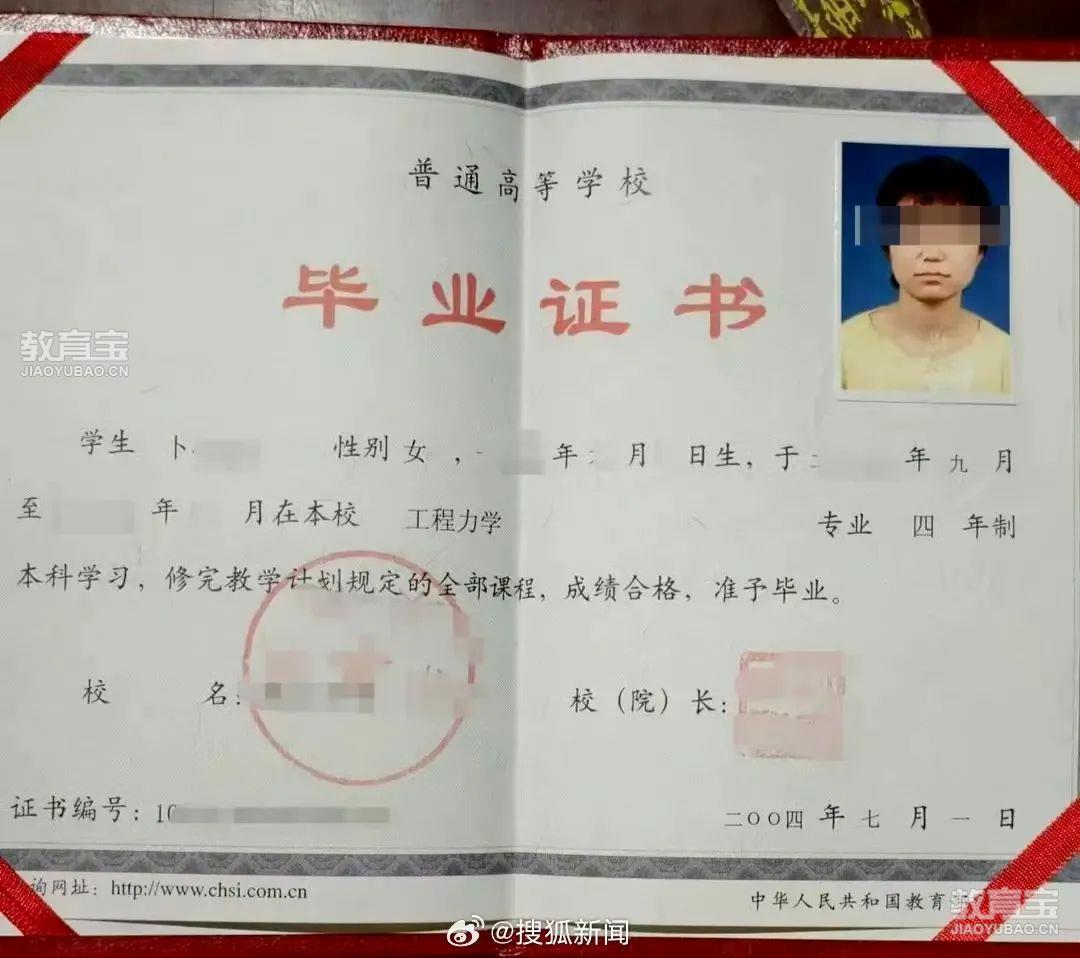 普通高等学校
毕业证书
教育宝
JIAOYUBAO.CN
学生 卜 性别 女 , 年 月 日生, 于 年 九 月
至 年 月在本校 工程力学 专业 四 年制
本科学习, 修完教学计划规定的全部课程, 成绩合格, 准予毕业。
校 名: 校（院）长:
证书编号: 10 二〇〇四 年 七 月 一 日
询网址: http://www.chsi.com.cn 中华人民共和国教育
教育宝
JIAOYUBAO.CN
@搜狐新闻